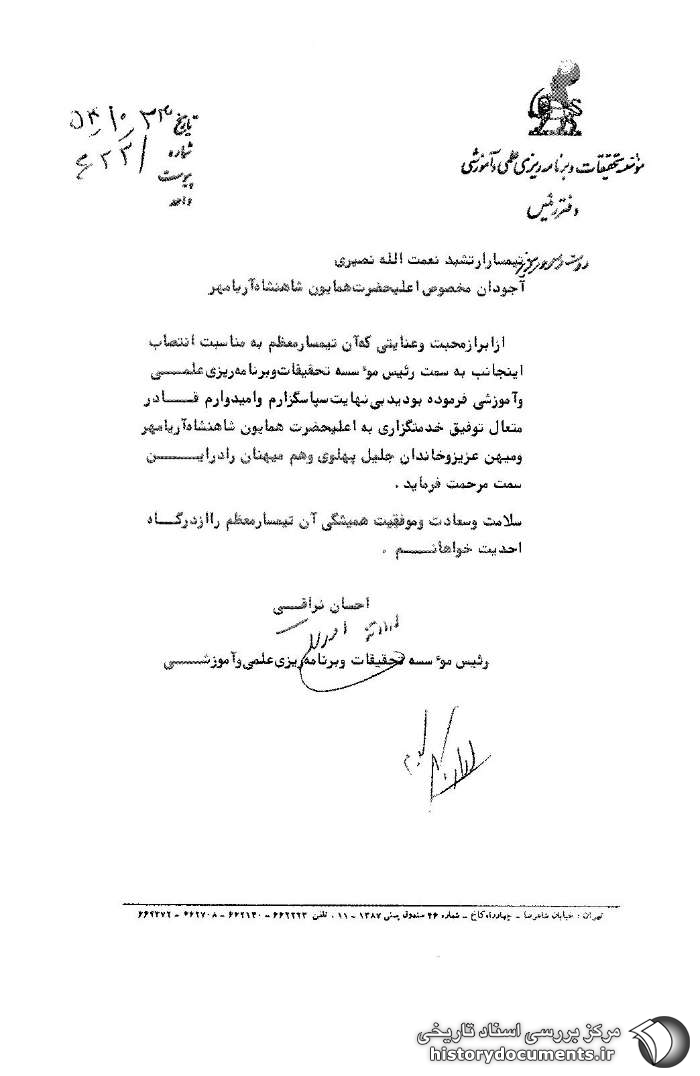 مؤسسه تحقیقات و برنامه ریزی علمی و آموزشی
دفتر رئیس
تاریخ ۵۴/۱۰/۲۳
شماره
پیوست
واحد
تیمسار ارتشبد نعمت الله نصیری
آجودان مخصوص اعلیحضرت همایون شاهنشاه آریامهر
از ابراز محبت و عنایتی که آن تیمسار معظم به مناسبت انتصاب
اینجانب به سمت رئیس موٴسسه تحقیقات و برنامه ریزی علمـــی
و آموزشی فرموده بودید بی نهایت سپاسگزارم و امیدوارم قـــادر
متعال توفیق خدمتگزاری به اعلیحضرت همایون شاهنشاه آریامهر
و میهن عزیز و خاندان جلیل پهلوی و هم میهنان را در ایـــن
سمت مرحمت فرماید .
سلامت و سعادت و موفقیت همیشگی آن تیمسار معظم را از درگـــاه
احدیت خواهانـــم .
احسان نراقـــی
رئیس موٴسسه تحقیقات و برنامه ریزی علمی و آموزشـــی
تهران : خیابان شاهرضا - چهارراه کاخ - شماره ۴۶ صندوق پستی ۱۳۸۷ - ۱۱ ، تلفن ۶۶۲۲۲۳ - ۶۶۲۱۴۰ - ۶۶۲۷۰۸ - ۶۶۹۳۷۲
مرکز بررسی اسناد تاریخی
historydocuments.ir